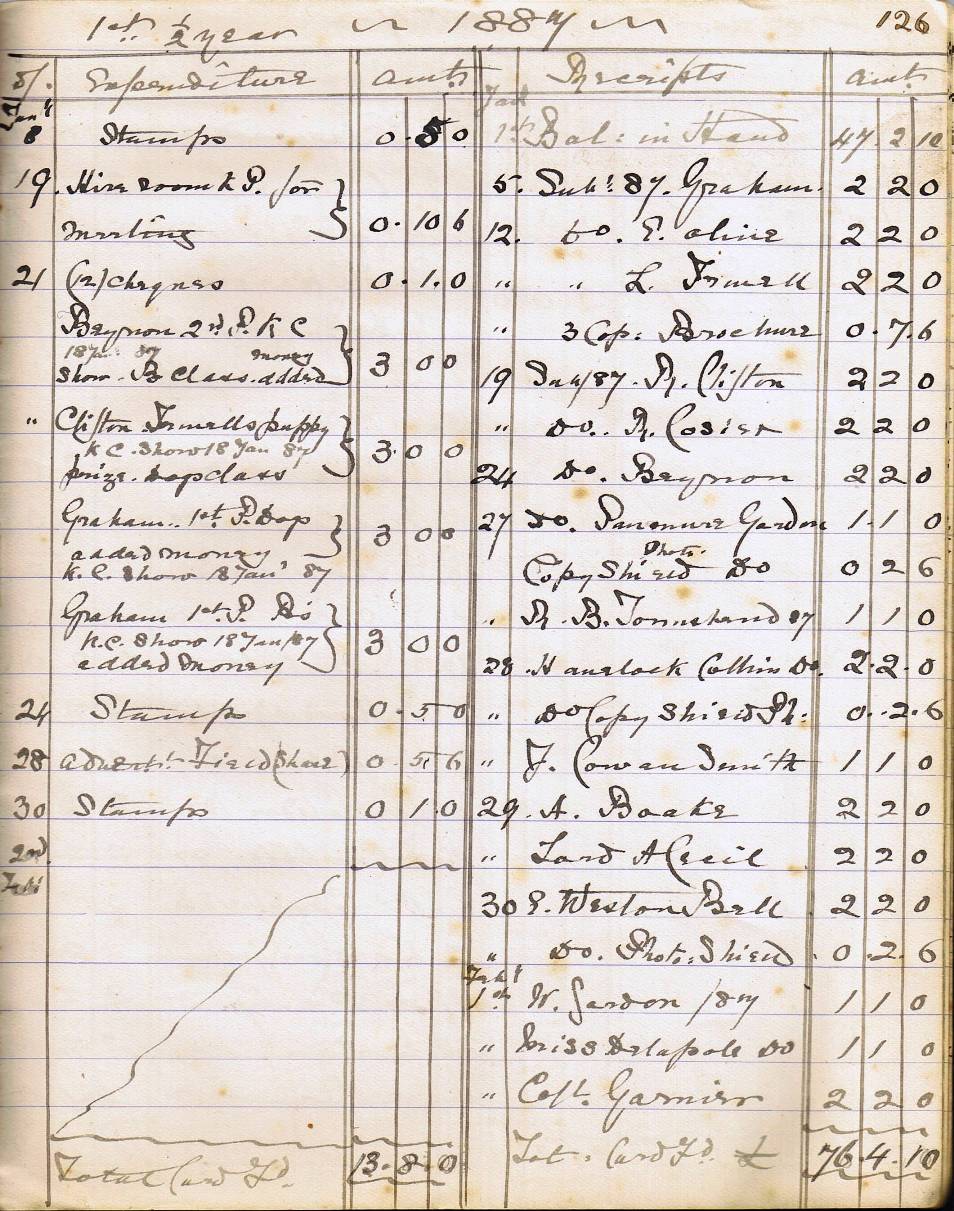 1st ½ year 1887 126
Expenditure amts
Jany
8 Stamps 0.5.0
19. Hire room K P. for
meeting 0.10 6
21 (12) cheques 0.1.0
Beynon 2nd P. K C
18 Jan: 87 money
Show. B Class. added 3 0 0
" Clifton Fewells puppy
K C. Show 18 Jan 87
prize. Dog class 3 0 0
Graham.. 1st P. Dog
added money 3 0 0
K. C. Show 18 Jany 87
Graham 1st. P. Bi
K.C. Show 18 Jan/87 3 0 0
added money
24 Stamps 0.5 0
28 advert. Field (share) 0 5 6
30 Stamps 0 1.0
2nd
Feb
Total Card Fd. 13.8.0
Receipts amts
Jan
1st Bal: in Hand 47.2 10
5. Sub: 87. Graham. 2 2 0
12. Do. E. Olive 2 2 0
" " L. Fewell 2 2 0
" 3 Cop: Brochure 0.7.6
19 Sub/87. R. Clifton 2 2 0
" Do.. R. Cosier 2 2 0
24 Do. Beynon 2 2 0
27 Do. Panmure Gordon 1.1 0
Photo.
Copy Shield Do 0 2 6
" R. B. Townshend 87 1 1 0
28. Havelock Collins Do. 2.2.0
" Do Copy Shield Ph: 0..2.6
" J. Cowan Smith 1 1 0
29. A. Boake 2 2 0
" Lord A Cecil 2 2 0
30 E. Weston Bell 2 2 0
" Do. Photo: Shield 0.2.6
Feby
1st W. Gordon /87 1 1 0
" Miss Delapole Do 1 1 0
" Capt. Garnier 2 2 0
Tot: Card Fd. £ 76.4.10